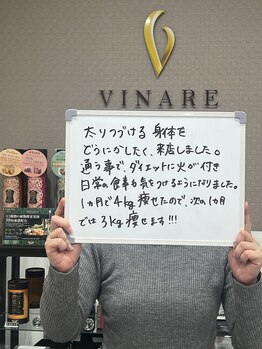 VINARE
太りつづける身体を
どうにかしたく、来店しました。
通う事で、ダイエットに火が付き
日常の食事も気をつけるようになりました。
1ヵ月で4kg痩せたので、次の1ヵ月
では3kg痩せます!!!